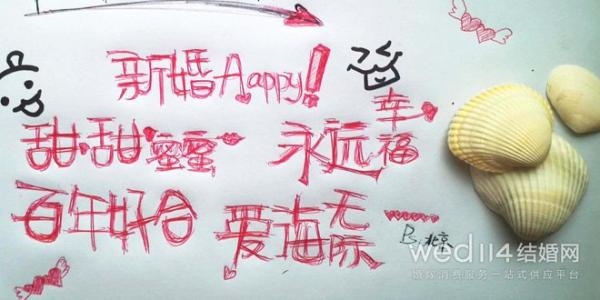 新婚Aappy!
甜甜蜜蜜 永远幸福
百年好合 爱海无际
B.北京
wed114结婚网
婚嫁消费服务一站式供应平台